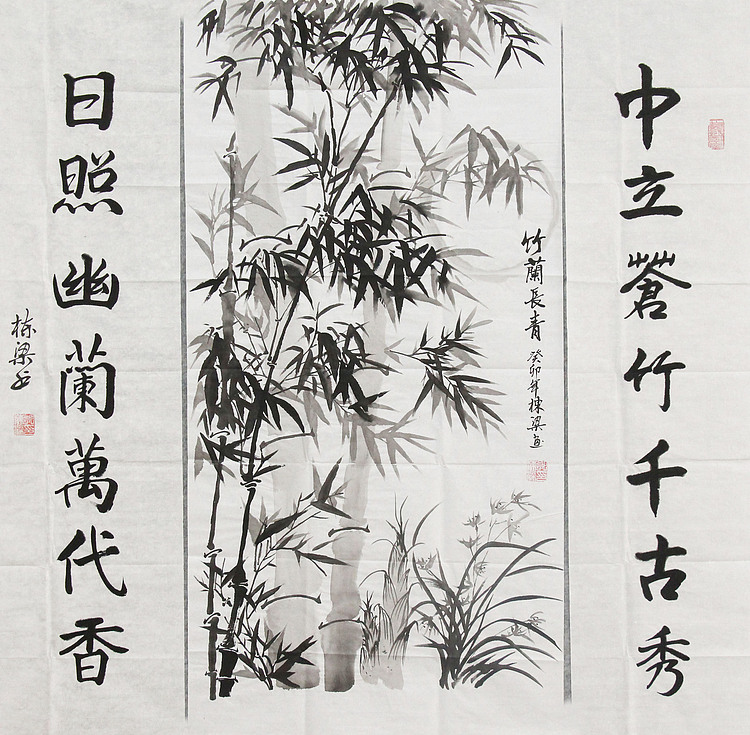 中立蒼竹千古秀
竹蘭長青
癸卯年棟梁画
日照幽蘭萬代香
栋梁书